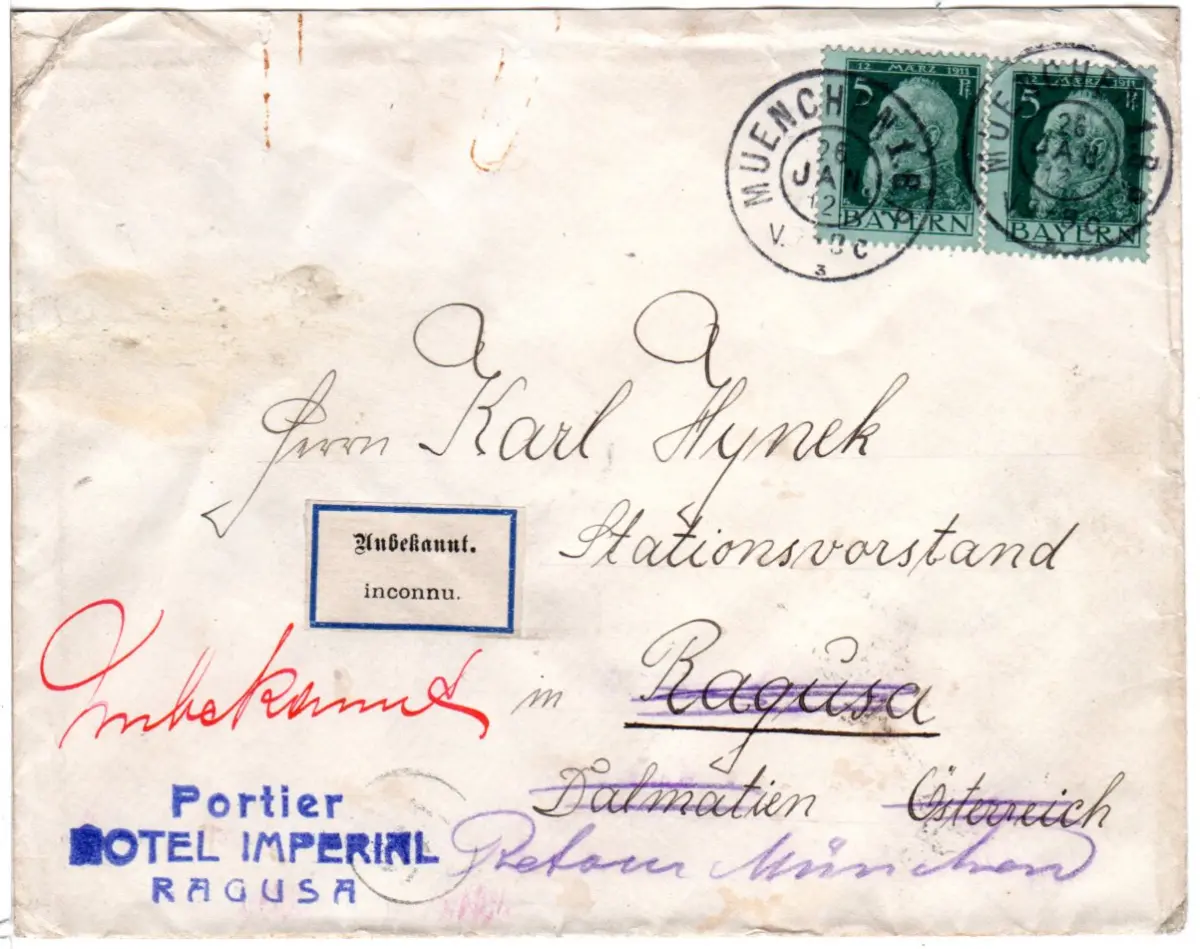 12. MÄRZ 1911
5 Pf
BAYERN
12. MÄRZ 1911
5 Pf
BAYERN
MUENCHEN 1. B.P.
26
JAN.
12
V.
3
MUENCHEN 1. B.P.
26
JAN.
12
V.
Herrn Karl Hynek
Stationsvorstand
Unbekannt.
inconnu.
Unbekannt
in Ragusa
Dalmatien Österreich
Portier
HOTEL IMPERIAL
RAGUSA
Retour München